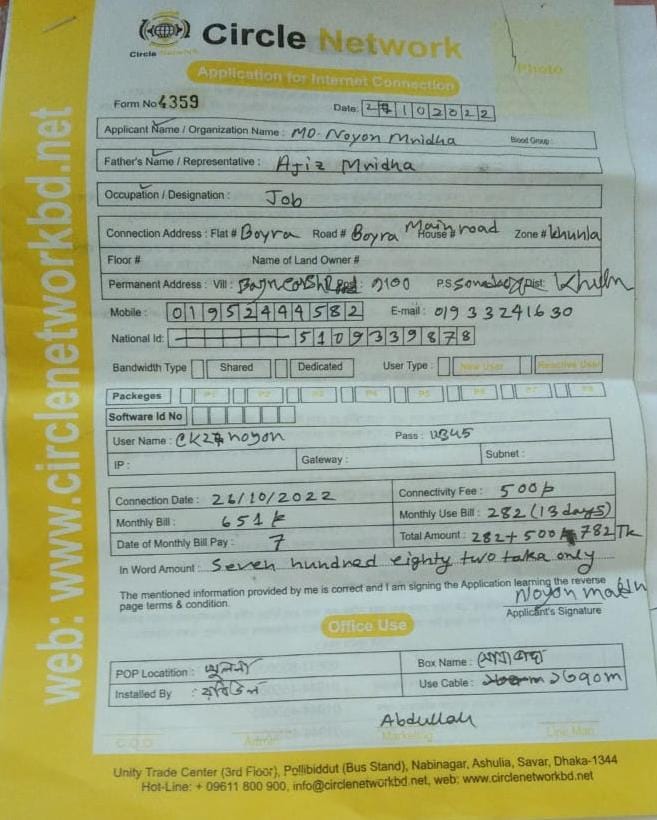 Circle Network
Circle Network
Application for Internet Connection
Photo
Form No 4359
Date: 27102022
Applicant Name / Organization Name : MD. Noyon Mridha Blood Group :
Father's Name / Representative : Ajiz Mridha
Occupation / Designation : Job
Connection Address : Flat # Boyra Road # Boyra Main road House # Zone # khunla
Floor # Name of Land Owner #
Permanent Address : Vill : Post : 9100 P.S Dist: Khuln
Mobile : 01952444582 E-mail : 01933241630
National Id: 5109339878
Bandwidth Type Shared Dedicated User Type : New User Reactive User
Packeges P1 P2 P3 P4 P5 P6 P7 P8
Software Id No
User Name : CK27noyon Pass :
IP : Gateway : Subnet :
Connection Date : 26/10/2022 Connectivity Fee : 500
Monthly Bill : 651 Monthly Use Bill : 282 (13 days)
Date of Monthly Bill Pay : 7 Total Amount : 282+500 782 Tk
In Word Amount : Seven hundred eighty two taka only
The mentioned information provided by me is correct and I am signing the Application learning the reverse
page terms & condition.
Noyon
Applicant's Signature
Office Use
POP Locatition : Box Name :
Installed By : Use Cable : ১৬৭০m
Abdullah
C.O.O Admin Marketing Line Man
Unity Trade Center (3rd Floor), Pollibiddut (Bus Stand), Nabinagar, Ashulia, Savar, Dhaka-1344
Hot-Line: + 09611 800 900, info@circlenetworkbd.net, web: www.circlenetworkbd.net
web: www.circlenetworkbd.net